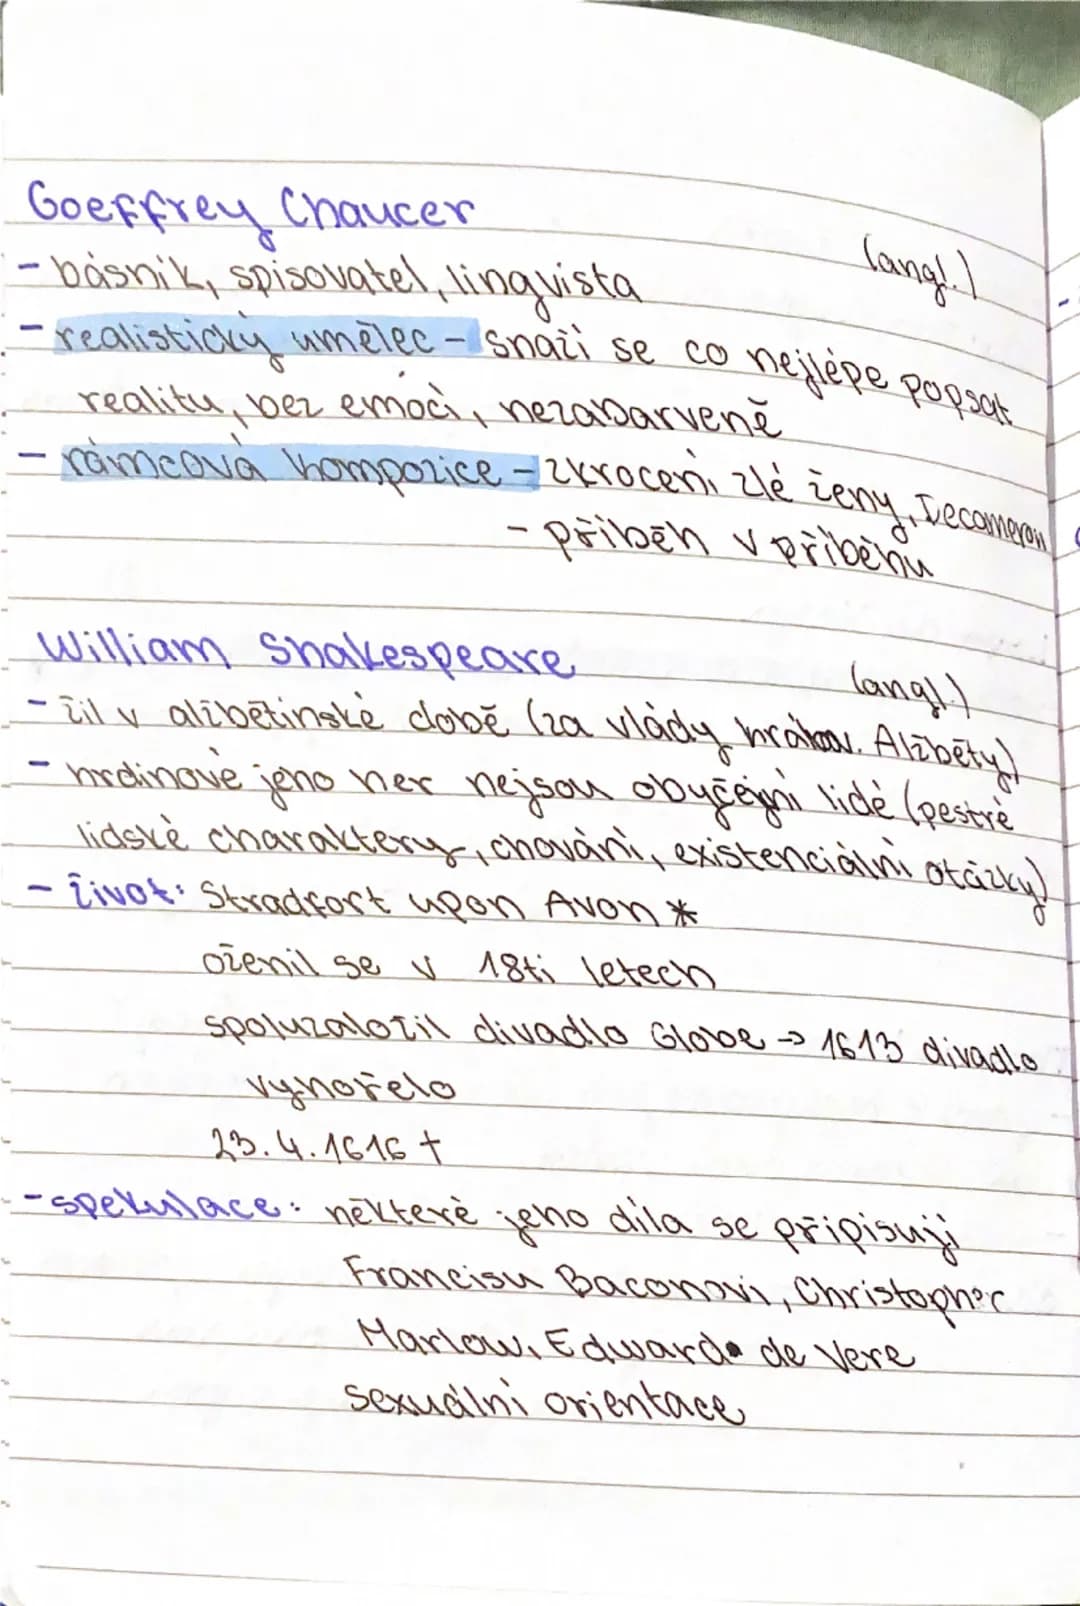 Goeffrey Chaucer (angl.)
- básník, spisovatel, lingvista
- realistický umělec - snaží se co nejlépe popsat
realitu, bez emocí, nezabarveně
- rámcová kompozice - zkrocení zlé ženy, Decameron
- příběh v příběhu
William Shakespeare (angl.)
- žil v alžbětinské době (za vlády královn. Alžběty)
- hrdinové jeho her nejsou obyčejní lidé (pestré
lidské charaktery, chování, existenciální otázky)
- život: Stradfort upon Avon *
oženil se v 18ti letech
spoluzaložil divadlo Globe -> 1613 divadlo
vyhořelo
23.4.1616 †
- spekulace: některé jeho díla se připisují
Francisu Baconovi, Christopher
Marlow, Edward de Vere
sexuální orientace